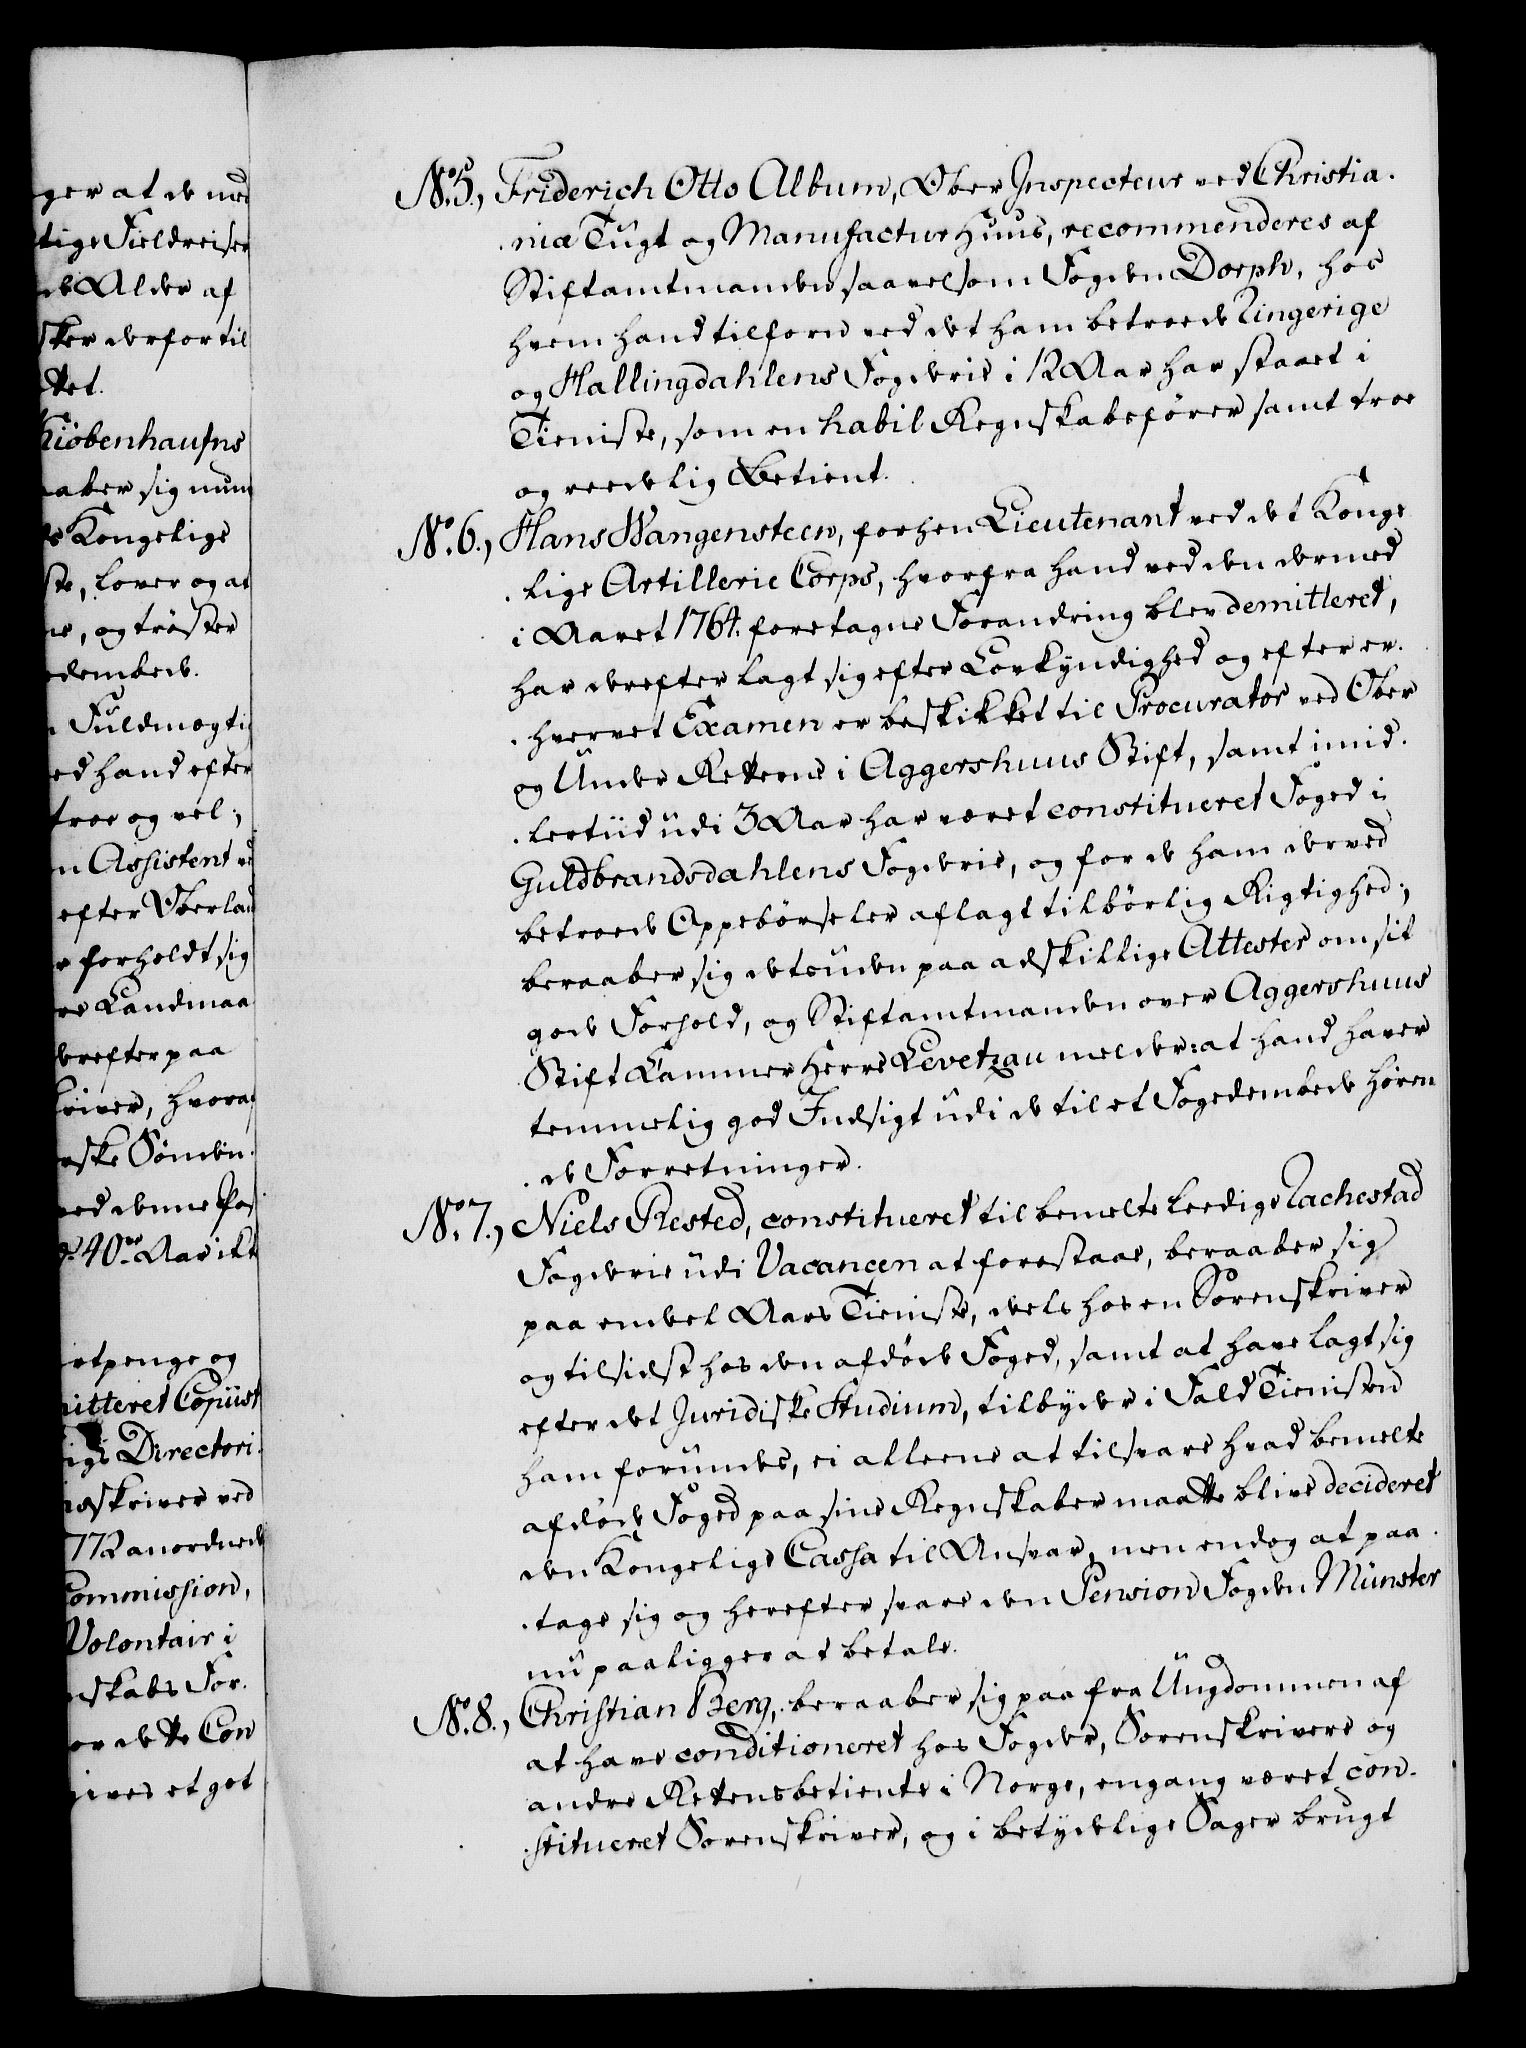 ger at de med
tige Fieldreiser
de Alder af
sker derfor til
tet.
Kiöbenhaufns
aaber sig num
Kongelige
ste, lover og at
ne, og trøster
edembede.
Fuldmægtig
ed hand efter
troe og vel;
n Assistent ved
efter Oberlan
forholdt sig
re Landmaa
derefter paa
kriver, hvoraf
nske Sönden.
ved denne Pos
40de Aar ikke
etpenge og
mitteret Copiist
igs Directori.
skriver ved
772 anordnede
Commission,
Volontair i
nskabs For.
or dette Con
gives et got
No. 5., Friderich Otto Album, Ober Inspecteur ved Christia.
.niæ Tugt og Manufactur Huus, recommenderes af
Stiftamtmanden saavelsom Fogden Dorph, hos
hvem hand tilforn ved det ham betroede Ringerige
og Hallingdahlens Fogderie i 12 Aar har staaet i
Tieniste, som en habil Regnskabsfører samt troe
og reedelig Betient.
No. 6., Hans Wangensteen, forhen Lieutenant ved det Konge
.lige Artillerie Corps, hvorfra hand ved den dermed
i Aaret 1764. foretagne Forandring blev demitteret,
har derefter lagt sig efter Lovkyndighed og efter er.
.hvervet Examen er beskikket til Procurator ved Ober
og Under Retterne i Aggershuus Stift, samt imid.
.lertiid udi 3 Aar har været constitueret Foged i
Guldbrandsdahlens Fogderie, og for de ham derved
betroede Oppebörseler aflagt tilbörlig Rigtighed;,
beraaber sig desuden paa adskillige Attester om sit
gode Forhold, og Stiftamtmanden over Aggershuus
Stift Cammer Herre Levetzau melder: at hand haver
temmelig god Indsigt udi de til et Fogedembede høren
.de Forretninger.
No. 7., Niels Rested, constitueret til bemelte leedige Zachestad
Fogderie udi Vacancen at forestaae, beraaber sig
paa endeel Aars Tieniste, deels hos en Sorenskriver
og tilsidst hos den afdöde Foged, samt at have lagt sig
efter det Juridiske Studium, tilbyder i Fald Tienisten
ham forundes, ei alleene at tilsvare hvad bemelte
afdöde Foged paa sine Regnskaber maatte blive decideret
den Kongelige Cassa til Ansvar, men endog at paa
.tage sig og herefter svare den Pension Fogden Münster
nu paaligger at betale.
No. 8., Christian Berg, beraaber sig paa fra Ungdommen af
at have conditioneret hos Fogder, Sorenskrivere og
andre Rettens betiente i Norge, engang været con.
.stitueret Sorenskriver, og i betydelige Sager brugt